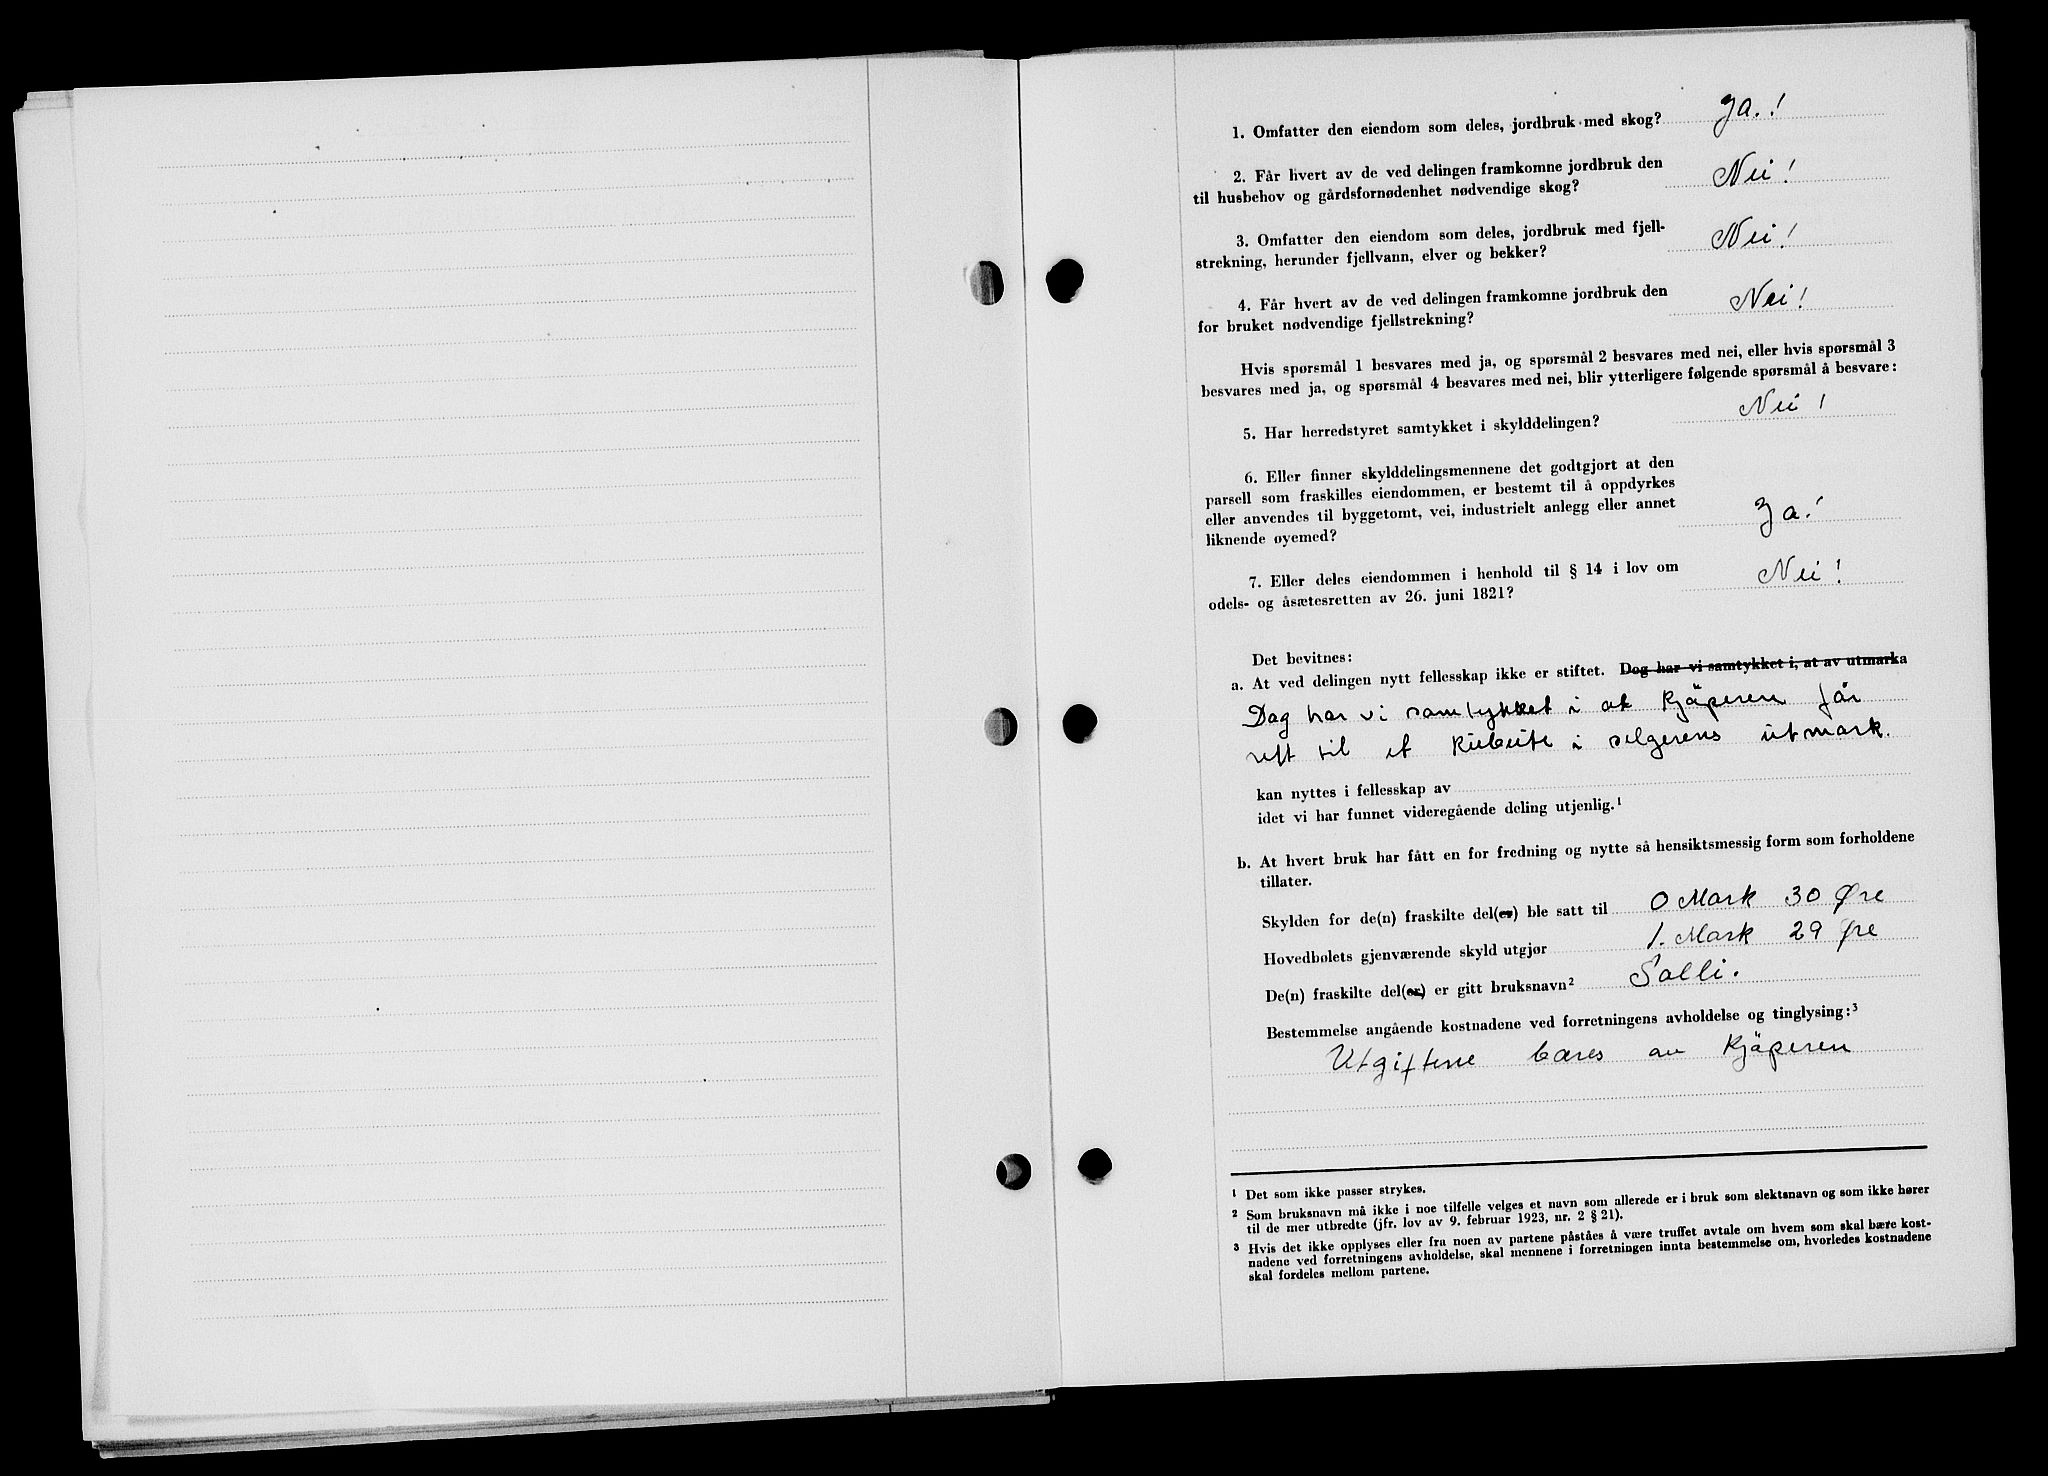 1. Omfatter den eiendom som deles, jordbruk med skog? Ja.!
2. Får hvert av de ved delingen framkomne jordbruk den
til husbehov og gårdsfornødenhet nødvendige skog? Nei!
3. Omfatter den eiendom som deles, jordbruk med fjell-
strekning, herunder fjellvann, elver og bekker? Nei!
4. Får hvert av de ved delingen framkomne jordbruk den
for bruket nødvendige fjellstrekning? Nei!
Hvis spørsmål 1 besvares med ja, og spørsmål 2 besvares med nei, eller hvis spørsmål 3
besvares med ja, og spørsmål 4 besvares med nei, blir ytterligere følgende spørsmål å besvare:
5. Har herredstyret samtykket i skylddelingen? Nei!
6. Eller finner skylddelingsmennene det godtgjort at den
parsell som fraskilles eiendommen, er bestemt til å oppdyrkes
eller anvendes til byggetomt, vei, industrielt anlegg eller annet
liknende øyemed? Ja!
7. Eller deles eiendommen i henhold til § 14 i lov om
odels- og åsætesretten av 26. juni 1821? Nei!
Det bevitnes:
a. At ved delingen nytt fellesskap ikke er stiftet. Dog har vi samtykket i, at av utmarka
Dog har vi samtykket i at kjöperen får
rett til et kubeite i selgerens utmark.
kan nyttes i fellesskap av
idet vi har funnet videregående deling utjenlig.¹
b. At hvert bruk har fått en for fredning og nytte så hensiktsmessig form som forholdene
tillater.
Skylden for de(n) fraskilte del(er) ble satt til 0 Mark 30 Øre
Hovedbølets gjenværende skyld utgjør 1. Mark 29 Øre
De(n) fraskilte del(er) er gitt bruksnavn² Solli.
Bestemmelse angående kostnadene ved forretningens avholdelse og tinglysing:³
Utgiftene bæres av kjöperen
¹ Det som ikke passer strykes.
² Som bruksnavn må ikke i noe tilfelle velges et navn som allerede er i bruk som slektsnavn og som ikke hører
til de mer utbredte (jfr. lov av 9. februar 1923, nr. 2 § 21).
³ Hvis det ikke opplyses eller fra noen av partene påståes å være truffet avtale om hvem som skal bære kost-
nadene ved forretningens avholdelse, skal mennene i forretningen innta bestemmelse om, hvorledes kostnadene
skal fordeles mellom partene.